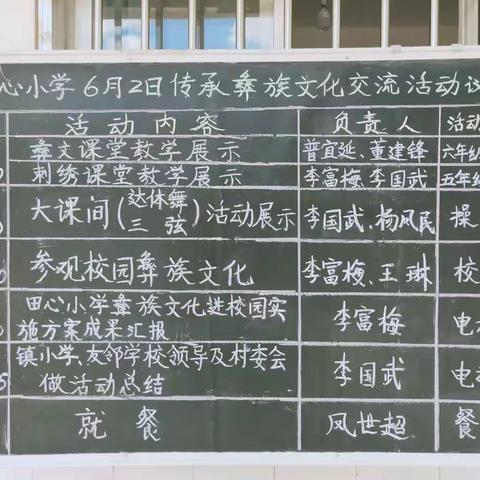 心小学6月2日传承彝族文化交流活动议
活动内容 负责人 活动
彝文课堂教学展示 普宜延、董建锋 六年级
刺绣课堂教学展示 李富梅、李国武 五年级
大课间(达体舞三弦)活动展示 李国武、杨凤民 操
参观校园彝族文化 李富梅、王琳 校
田心小学彝族文化进校园实
施方案成果汇报 李富梅 电
镇小学、友邻学校领导及村委会
做活动总结 李国武 电
就餐 凤世超 餐